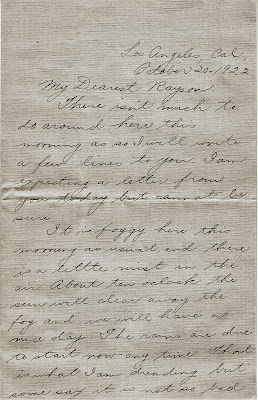 Los Angeles, Cal.
October 20-1922
My Dearest Rayson
There isn't much to
do around here this
morning as so I will write
a few lines to you. I am
expecting a letter from
you today but cannot be
sure
It is foggy here this
morning as usual and there
is a little mist in the
air. About ten oclock the
sun will clear away the
fog and we will have a
nice day. The rains are due
to start now any time. That
is what I am dreading but
some say it is not so bad